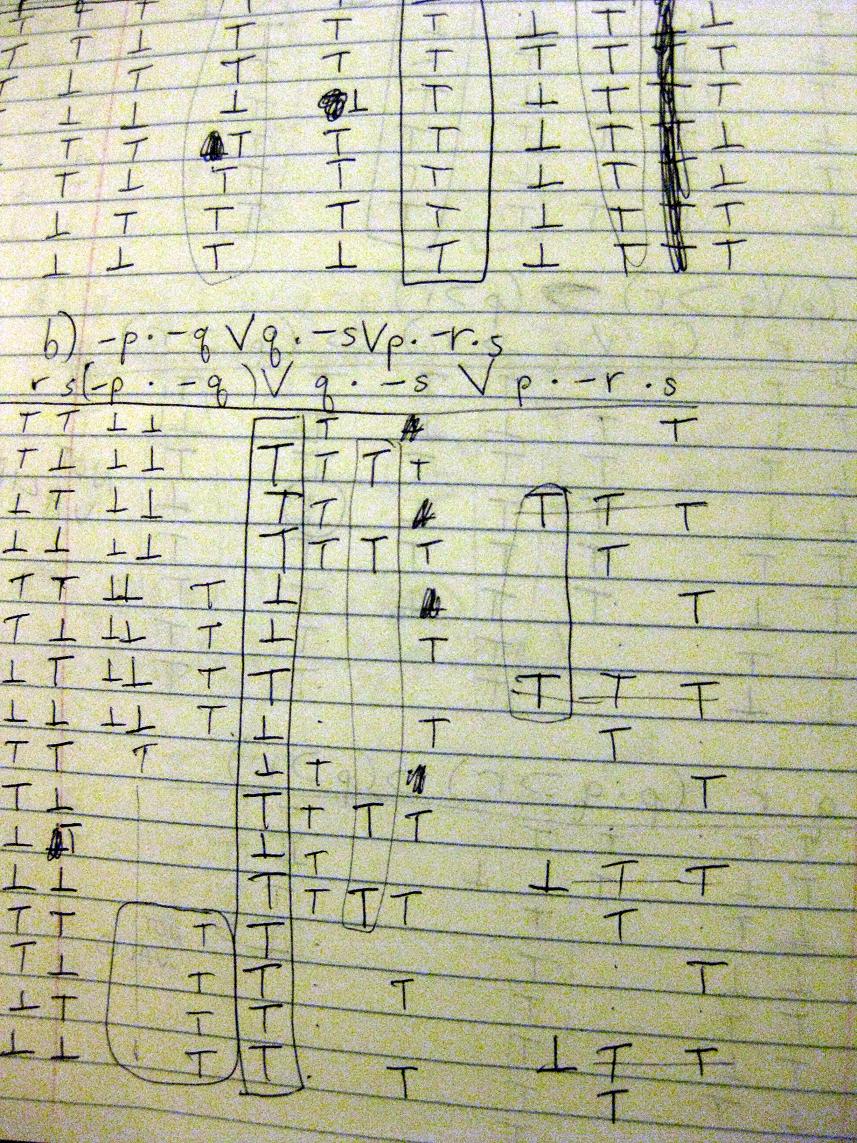 T T ⊥ T T T ⊥ T ⊥
⊥ T T T T T T T
⊥ ⊥ ⊥ ⊥ T ⊥ T T
T T T T T ⊥ T ⊥
T ⊥ T T T ⊥ T ⊥
⊥ T T T T ⊥ T T
⊥ ⊥ T ⊥ T ⊥ T T
b) -p · -q V q · -s V p · -r · s
r s (-p · -q) V q · -s V p · -r · s
T T ⊥ ⊥ T T
T ⊥ ⊥ ⊥ T T T T
⊥ T ⊥ ⊥ T T T T T
⊥ ⊥ ⊥ ⊥ T T T T T
T T ⊥ ⊥ T ⊥ T
T ⊥ ⊥ ⊥ T ⊥ T
⊥ T ⊥ ⊥ T T T T T
⊥ ⊥ ⊥ ⊥ T ⊥ T T
T T T ⊥ T T
T ⊥ T T T T
⊥ T ⊥ T ⊥ T T
⊥ ⊥ T T T T T
T T T T
T ⊥ T T T T
⊥ T T T
⊥ ⊥ T T T ⊥ T T
T